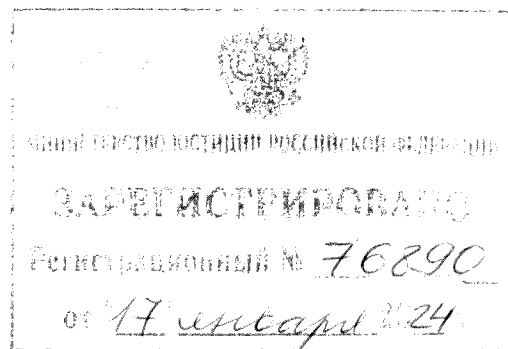 МИНИСТЕРСТВО ЮСТИЦИИ РОССИЙСКОЙ ФЕДЕРАЦИИ
ЗАРЕГИСТРИРОВАНО
Регистрационный № 76290
от "17" января 2024